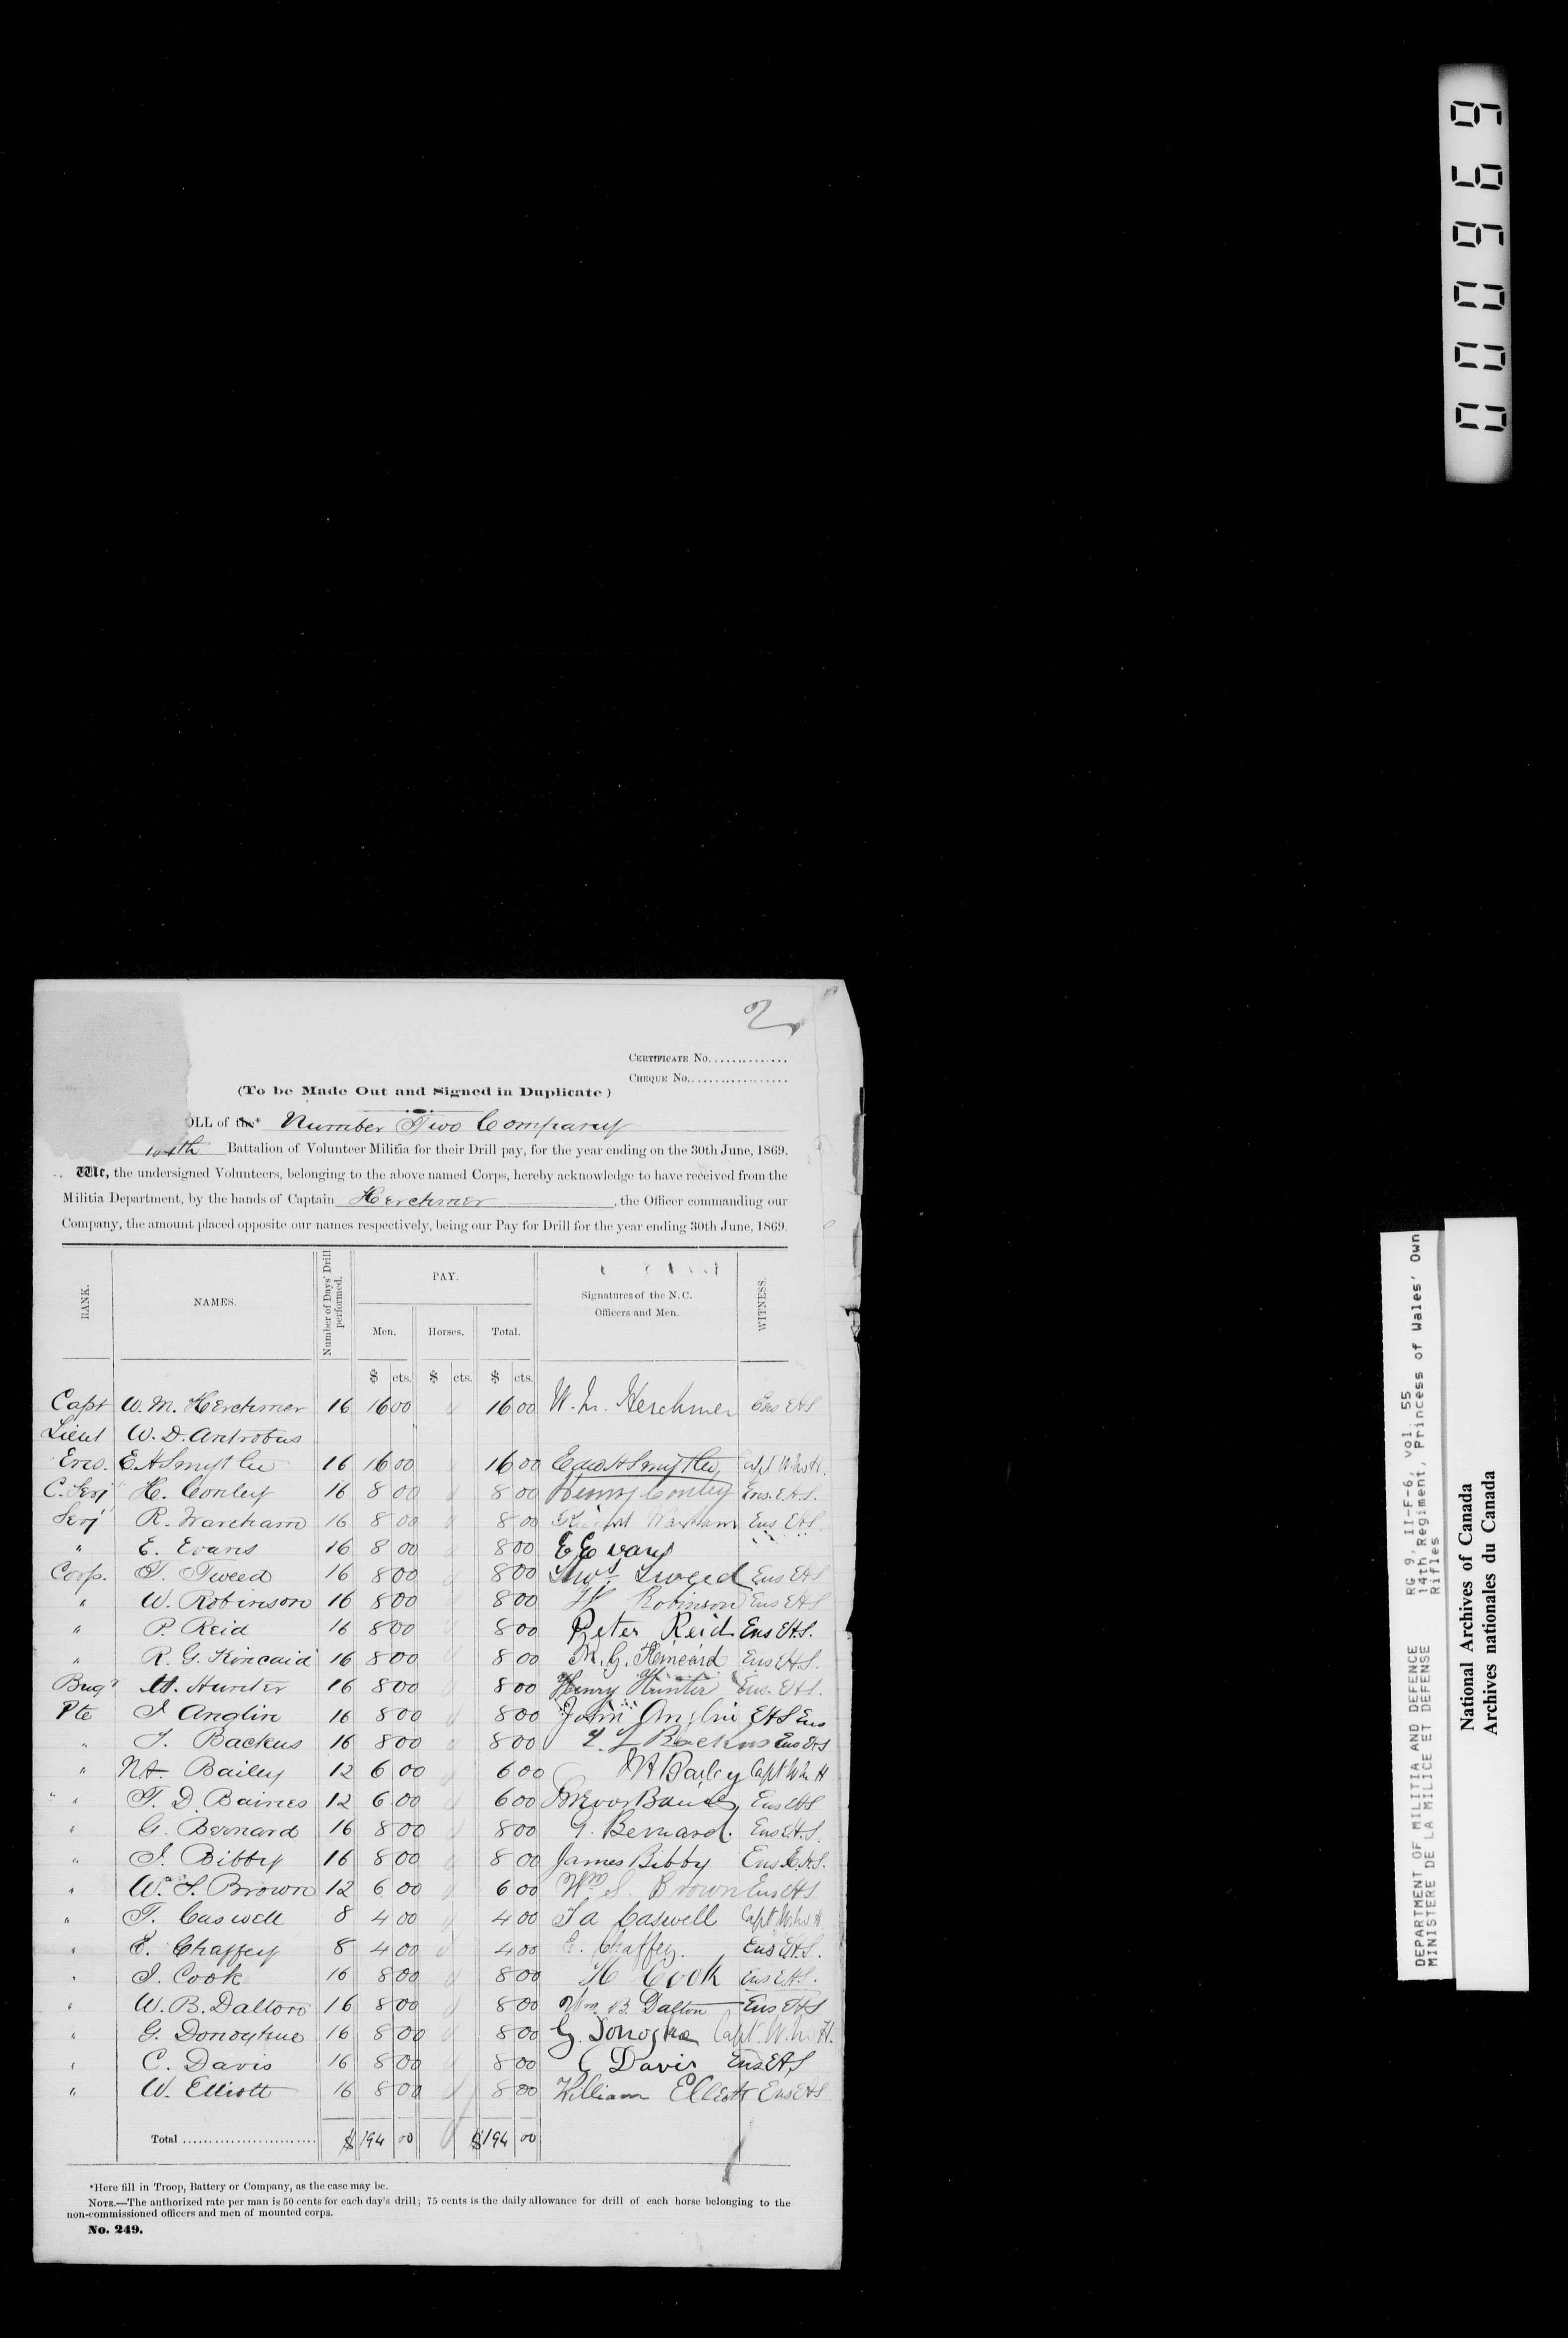 2
CERTIFICATE No..............
CHEQUE No..................
(To be Made Out and Signed in Duplicate)
OLL of the* Number Two Company
14th Battalion of Volunteer Militia for their Drill pay, for the year ending on the 30th June, 1869.
We, the undersigned Volunteers, belonging to the above named Corps, hereby acknowledge to have received from the
Militia Department, by the hands of Captain Herchmer, the Officer commanding our
Company, the amount placed opposite our names respectively, being our Pay for Drill for the year ending 30th June, 1869.
RANK. NAMES. Number of Days' Drill performed. PAY. Signatures of the N.C. Officers and Men. WITNESS.
Men. Horses. Total.
$ cts. $ cts. $ cts.
Capt W. M. Herchmer 16 16 00 16 00 W. M. Herchmer Ens EHS
Lieut W. D. Antrobus
Ens. E H Smythe 16 16 00 16 00 Edwd H Smythe Capt W M H.
C. Serj H. Conley 16 8 00 8 00 Henry Conley Ens. E.H.S.
Serj R. Wareham 16 8 00 8 00 Wareham Ens EHS
" E. Evans 16 8 00 8 00 E Evans
Corp. T. Tweed 16 8 00 8 00 Thos Tweed Ens EHS
" W. Robinson 16 8 00 8 00 W Robinson Ens EHS
" P. Reid 16 8 00 8 00 Peter Reid Ens EH.S.
" R. G. Kincaid 16 8 00 8 00 R. G. Kincaid Ens E.H.S.
Bugr H. Hunter 16 8 00 8 00 Henry Hunter Ens. EHS.
Pte J Anglin 16 8 00 8 00 John Anglin EHS Ens
" T. Backus 16 8 00 8 00 Backus Ens EHS
" Bailey 12 6 00 6 00 Bailey Capt W M H
" T. D. Baines 12 6 00 6 00 Ens EHS
" G. Bernard 16 8 00 8 00 G. Bernard. Ens E.H.S.
" J. Bibby 16 8 00 8 00 James Bibby Ens E.H.S.
" W. S. Brown 12 6 00 6 00 Wm S. Brown Ens EHS
" T. Caswell 8 4 00 4 00 T a Caswell Capt W M H.
" E. Chaffey 8 4 00 4 00 E. Chaffey. Ens E.H.S.
" J. Cook 16 8 00 8 00 Cook Ens E.H.S.
" W. B. Dalton 16 8 00 8 00 Wm. B. Dalton Ens EHS
" G. Donoghue 16 8 00 8 00 G. Donoghue Capt. W. M H.
" C. Davis 16 8 00 8 00 C Davis Ens EHS
" W. Elliott 16 8 00 8 00 William Elliott Ens EHS
Total .......................... $ 194 00 $ 194 00
*Here fill in Troop, Battery or Company, as the case may be.
NOTE.—The authorized rate per man is 50 cents for each day's drill; 75 cents is the daily allowance for drill of each horse belonging to the
non-commissioned officers and men of mounted corps.
No. 249.
000969
DEPARTMENT OF MILITIA AND DEFENCE RG 9, II-F-6, vol. 55
MINISTERE DE LA MILICE ET DEFENSE 14th Regiment, Princess of Wales' Own
Rifles
National Archives of Canada
Archives nationales du Canada